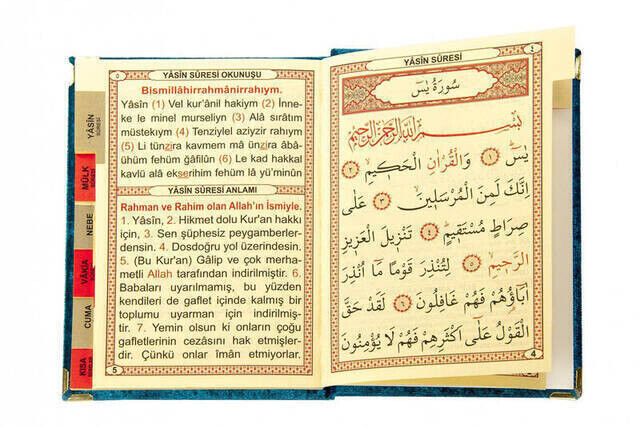 ٥ YÂSİN SÛRESİ OKUNUŞU
Bismillâhirrahmânirrahıym.
Yâsîn (1) Vel kur'ânil hakiym (2) İnne-
ke le minel murseliyn (3) Alâ sırâtım
müstekıym (4) Tenziylel aziyzir rahıym
(5) Li tünzira kavmem mâ ünzira âbâ-
ühüm fehüm ğâfilûn (6) Le kad hakkal
kavlü alâ ekserihim fehüm lâ yü'minûn
YÂSİN SÛRESİ ANLAMI
Rahman ve Rahim olan Allah'ın İsmiyle.
1. Yâsîn, 2. Hikmet dolu Kur'an hakkı
için, 3. Sen şüphesiz peygamberler-
densin. 4. Dosdoğru yol üzerindesin.
5. (Bu Kur'an) Gâlip ve çok merha-
metli Allah tarafından indirilmiştir. 6.
Babaları uyarılmamış, bu yüzden
kendileri de gaflet içinde kalmış bir
toplumu uyarman için indirilmiş-
tir. 7. Yemin olsun ki onların çoğu
gafletlerinin cezasını hak etmişler-
dir. Çünkü onlar îmân etmiyorlar.
5
YÂSİN
SÛRESİ
MÜLK
SÛRESİ
NEBE
VÂKIA
CUMA
KISA
YÂSİN SÛRESİ ٤
سُورَةُ يٰسٓ
بِسْمِ اللّٰهِ الرَّحْمٰنِ الرَّحِيمِ
يٰسٓ ﴿١﴾ وَالْقُرْاٰنِ الْحَك۪يمِ ﴿٢﴾
اِنَّكَ لَمِنَ الْمُرْسَل۪ينَ ﴿٣﴾ عَلٰى
صِرَاطٍ مُسْتَق۪يمٍ ﴿٤﴾ تَنْز۪يلَ الْعَز۪يزِ
الرَّح۪يمِ ﴿٥﴾ لِتُنْذِرَ قَوْمًا مَٓا اُنْذِرَ
اٰبَٓاؤُ۬هُمْ فَهُمْ غَافِلُونَ ﴿٦﴾ لَقَدْ حَقَّ
الْقَوْلُ عَلٰٓى اَكْثَرِهِمْ فَهُمْ لَا يُؤْمِنُونَ
4